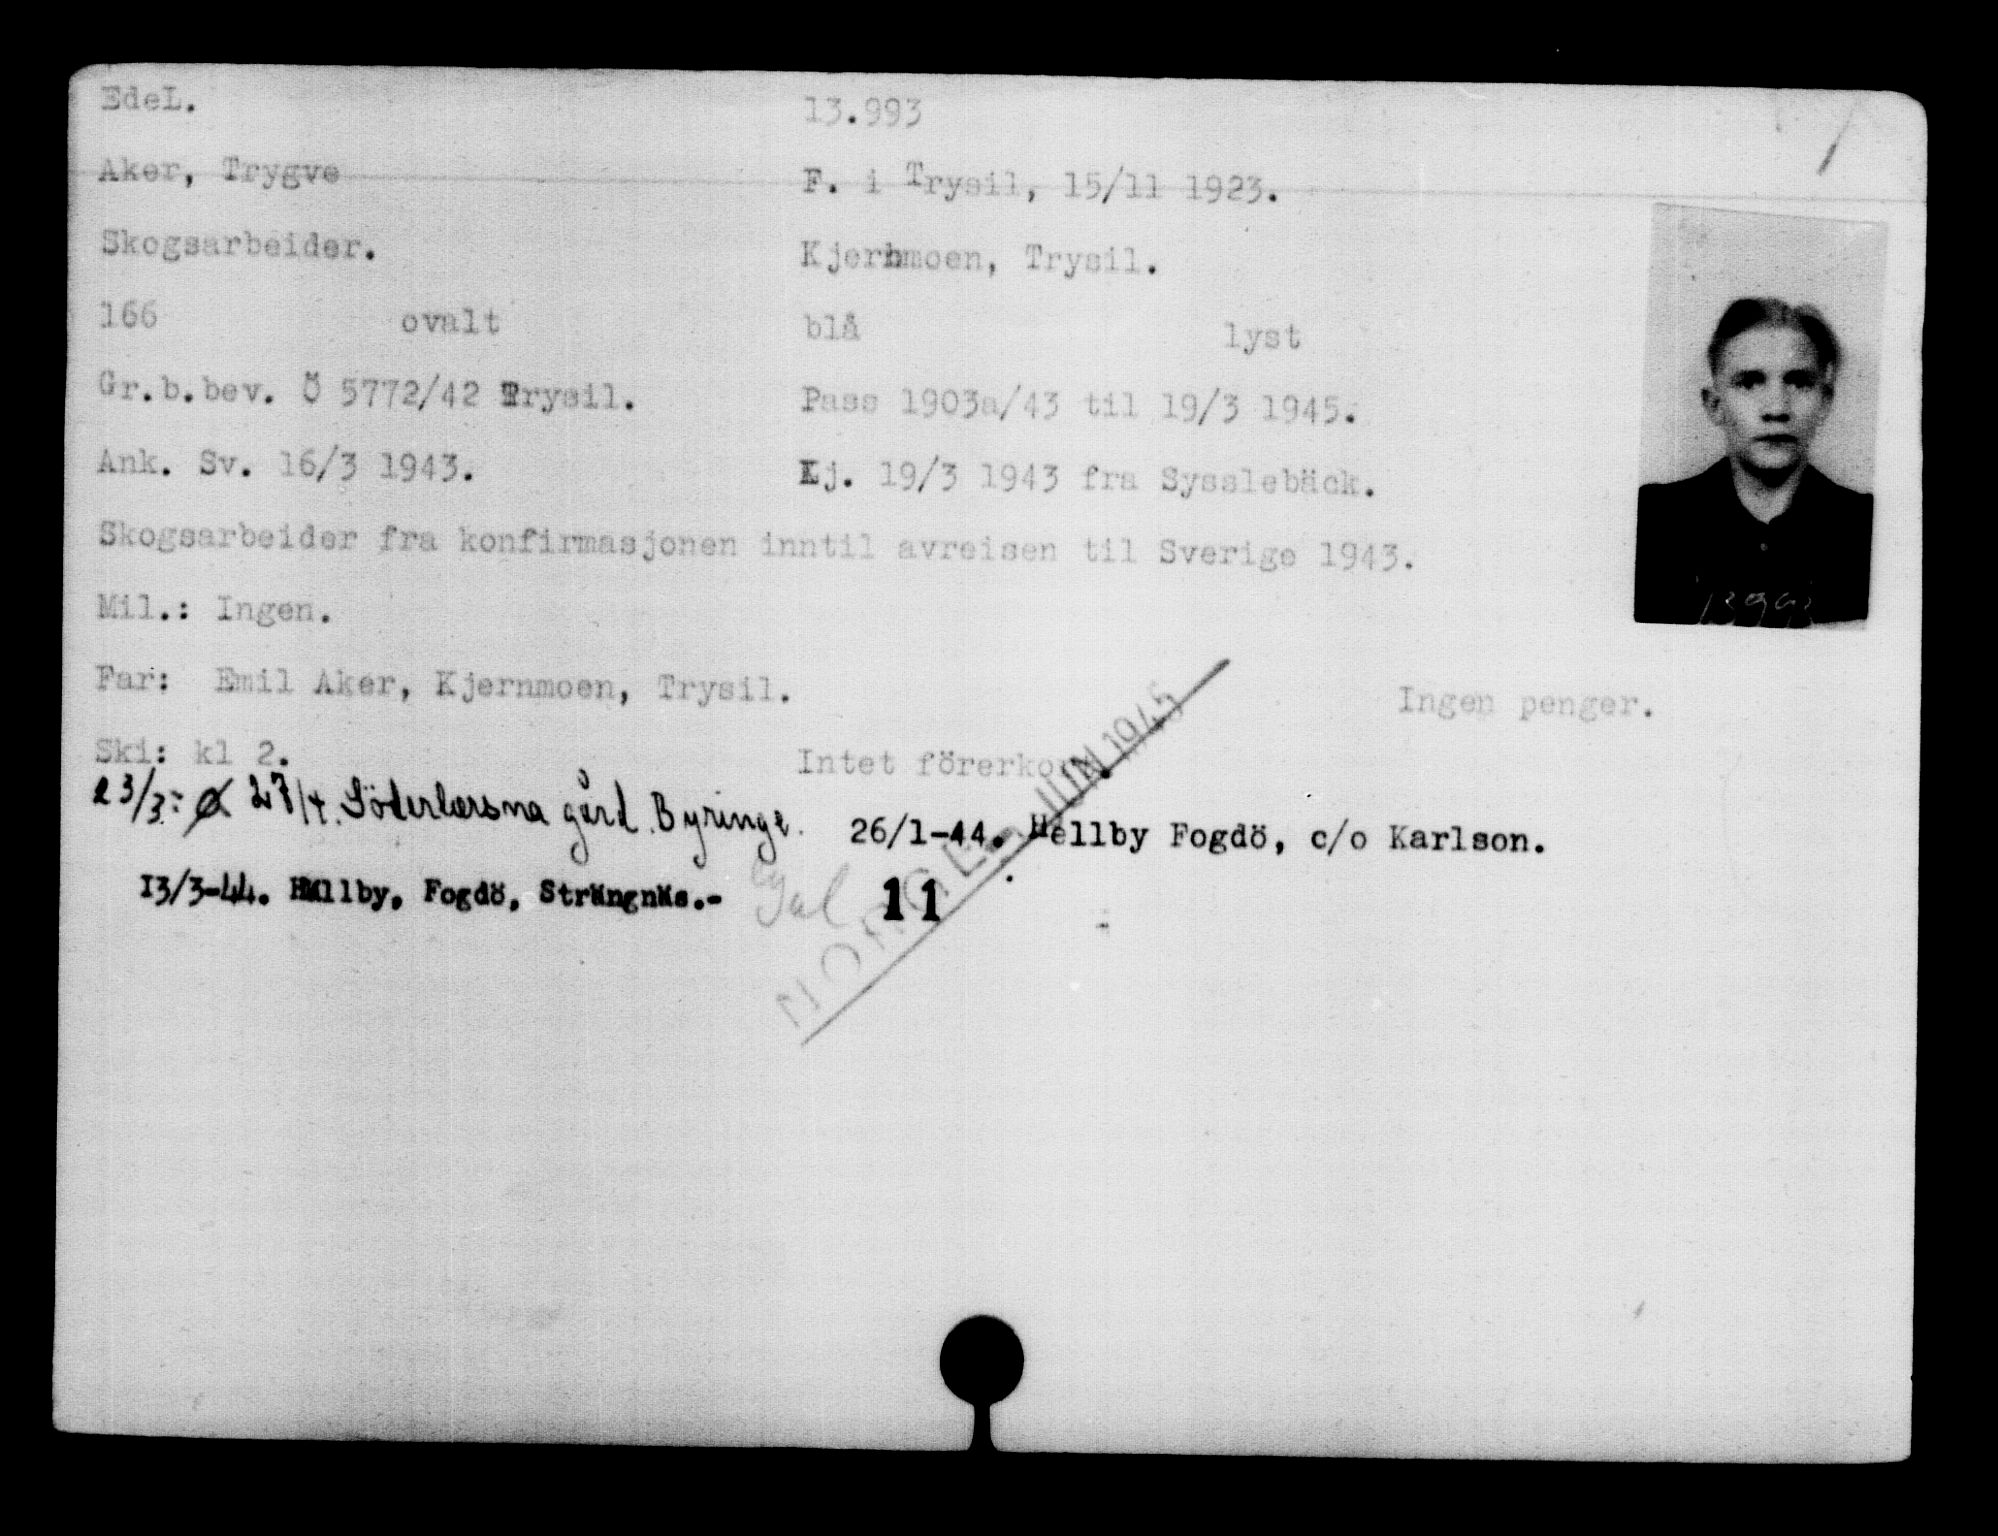 EdeL. 13.993
Aker, Trygve F. i Trysil, 15/11 1923.
Skogsarbeider. Kjernmoen, Trysil.
166 ovalt blå lyst
Gr.b.bev. Ö 5772/42 Trysil. Pass 1903a/43 til 19/3 1945.
Ank. Sv. 16/3 1943. Kj. 19/3 1943 fra Sysslebäck.
Skogsarbeider fra konfirmasjonen inntil avreisen til Sverige 1943.
Mil.: Ingen.
Far: Emil Aker, Kjernmoen, Trysil. Ingen penger.
Ski: kl 2. Intet förerkort.
23/3: Ø 27/4. gård. Byringe. 26/1-44. Hellby Fogdö, c/o Karlson.
13/3-44. Hällby, Fogdö, Strängnäs.- 11
NORGE JUN 1945
13993